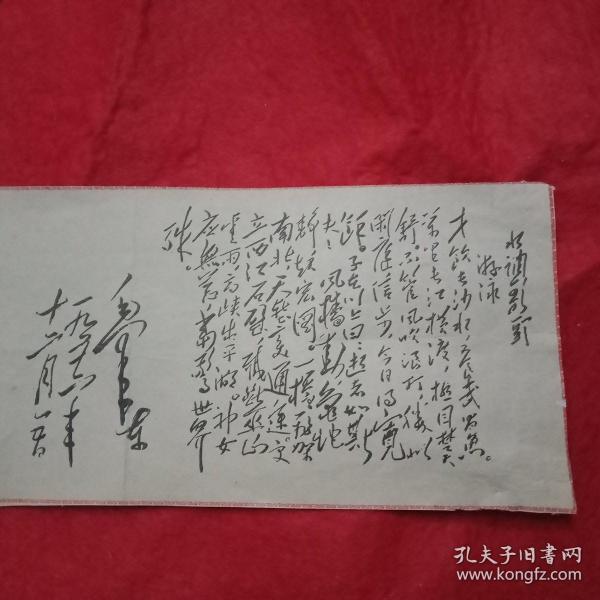 水調歌頭
游泳
才飲长沙水,又食武昌魚。
萬里长江横渡,极目楚天
舒。不管風吹浪打,勝似
閑庭信步,今日得寬
餘。子在川上曰:逝者如斯
夫!風檣動,龜蛇
静,起宏圖。一橋飛架
南北,天塹变通途。更
立西江石壁,截断巫山
雲雨,高峡出平湖。神女
应無恙,當驚世界
殊。
毛泽东
一九五六年
十二月
孔夫子旧书网
www.kongfz.com